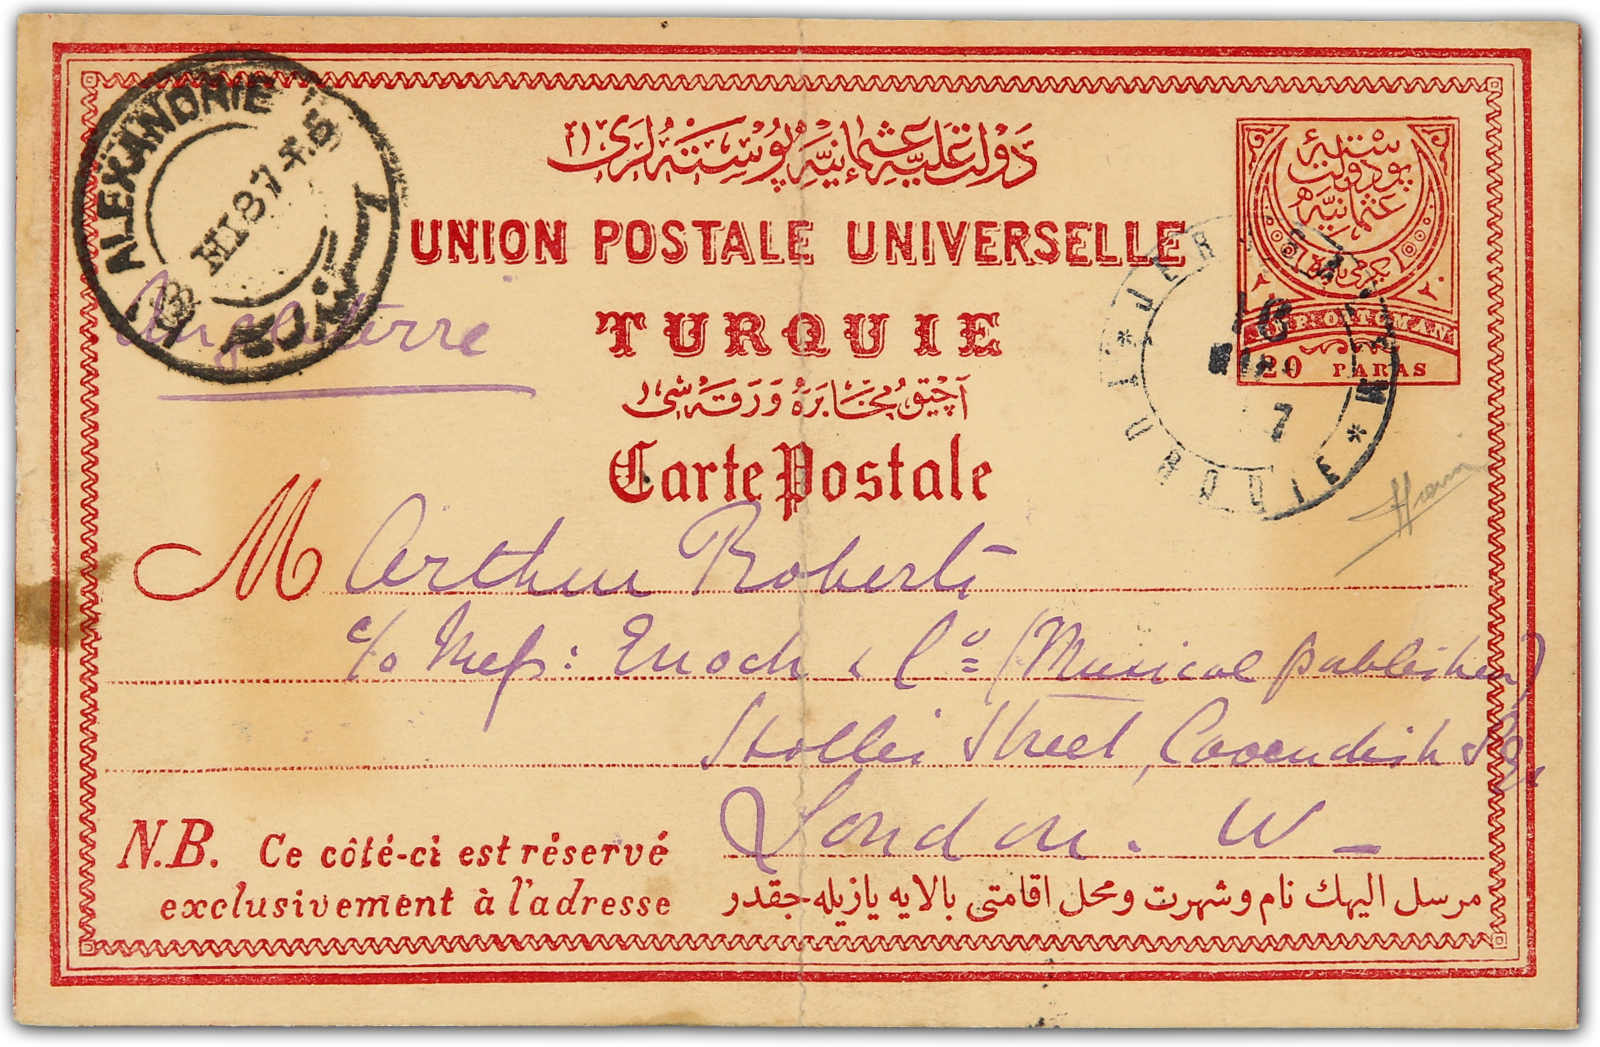 دولت علیه عثمانیه پوسته لری
UNION POSTALE UNIVERSELLE
TURQUIE
آچیق مخابره ورقه سی
Carte Postale
ALEXANDRIE
III 87
Angleterre
پوسته
دولت
عثمانیه
EMP: OTTOMAN
20 PARAS
JERUSALEM
18
MAR
7
TURQUIE
M Arthur Roberts
c/o Mess: Enoch & Co (Musical Publisher)
Holles Street, Cavendish Sq.
London. W
N.B. Ce côté-ci est réservé
exclusivement à l'adresse
مرسل الیهك نام و شهرت و محل اقامتی بالایه یازیله جقدر